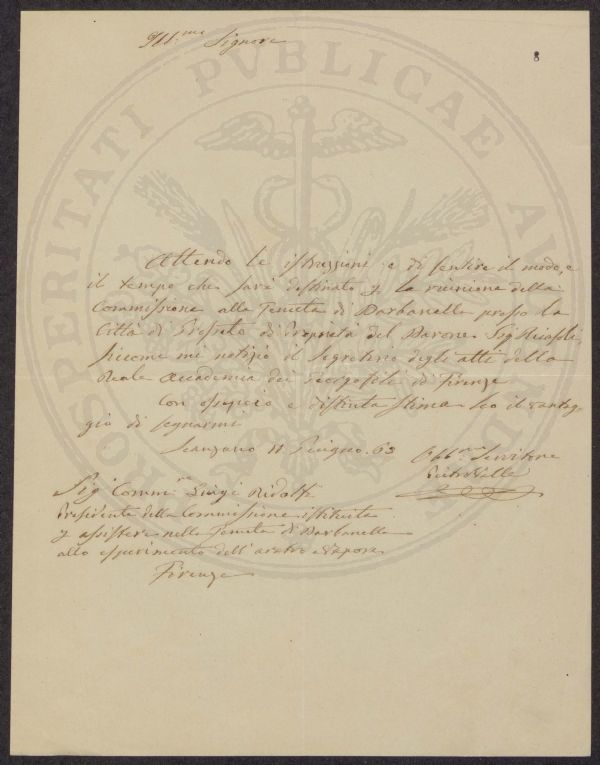 8
Ill.mo Signore
Attendo le istruzzioni e di sentire il modo, e
il tempo che sarà destinato p la riunione della
Commissione alla Tenuta di Barbanella presso la
Città di Grosseto di Proprietà del Barone Sig Ricasoli,
siccome mi notiziò il Segretario degli atti della
Reale Accademia dei Georgofili di Firenze
Con ossequio e distinta stima ho il vantag-
gio di segnarmi
Scanzano 11 Giugno 63
Obb.mo Servitore
Pietro Valle
Sig Comm.re Luigi Ridolfi
Presidente della Commissione istituita
p assistere nella Tenuta di Barbanella
allo esperimento dell'aratro a vapore
Firenze
PROSPERITATI PVBLICAE AVGENDAE